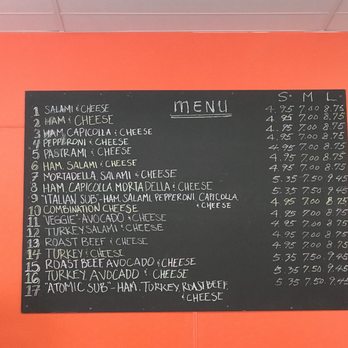 MENU
S. M L
1 SALAMI & CHEESE 4.95 7.00 8.75
2 HAM & CHEESE 4.95 7.00 8.75
3 HAM CAPICOLLA & CHEESE 4.95 7.00 8.75
4 PEPPERONI & CHEESE 4.95 7.00 8.75
5 PASTRAMI & CHEESE 4.95 7.00 8.75
6 HAM, SALAMI & CHEESE 4.95 7.00 8.75
7 MORTADELLA, SALAMI & CHEESE 5.35 7.50 9.45
8 HAM CAPICOLLA MORTADELLA & CHEESE 5.35 7.50
9 "ITALIAN SUB"-HAM, SALAMI, PEPPERONI, CAPICOLLA & CHEESE
10 COMBINATION CHEESE 4.95 7.00 8.75
11 "VEGGIE"-AVOCADO & CHEESE 4.95 7.00 8.75
12 TURKEY, SALAMI & CHEESE
13 ROAST BEEF & CHEESE 4.95 7.00 8.75
14 TURKEY & CHEESE 4.95 7.00 8.75
15 ROAST BEEF, AVOCADO & CHEESE 5.35 7.50
16 TURKEY, AVOCADO & CHEESE 5.35 7.50
17 "ATOMIC SUB"-HAM, TURKEY, ROAST BEEF, & CHEESE 5.35 7.50 9.45